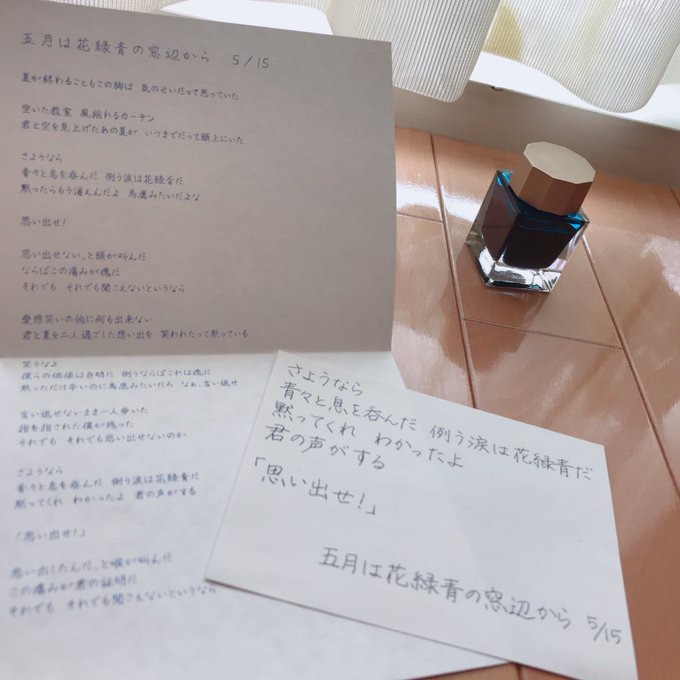 五月は花緑青の窓辺から 5/15
夏が終わることもこの胸は 気のせいだって思っていた
空いた教室 風揺れるカーテン
君と空を見上げたあの夏が いつまでだって頭上にいた
さようなら
青々と息を呑んだ 例う涙は花緑青だ
黙ったらもう消えんだよ 馬鹿みたいだよな
思い出せ!
思い出せない、と頭が叫んだ
ならばこの痛みが魂だ
それでも それでも聞こえないというなら
愛想笑いの他に何も出来ない
君と夏を二人過ごした想い出を 笑われたって黙っている
笑うなよ
僕らの価値は自明だ 例うならばこれは魂だ
黙っただけ辛いのに馬鹿みたいだろ なぁ、言い返せ
言い返せないまま一人歩いた
指を指された僕が残った
それでも それでも思い出せないのか
さようなら
青々と息を呑んだ 例う涙は花緑青だ
黙ってくれ わかったよ 君の声がする
「思い出せ!」
思い出したんだ、と喉が叫んだ
この痛みが君の証明だ
それでも それでも聞こえないというなら
さようなら
青々と息を呑んだ 例う涙は花緑青だ
黙ってくれ わかったよ
君の声がする
「思い出せ!」
五月は花緑青の窓辺から 5/15